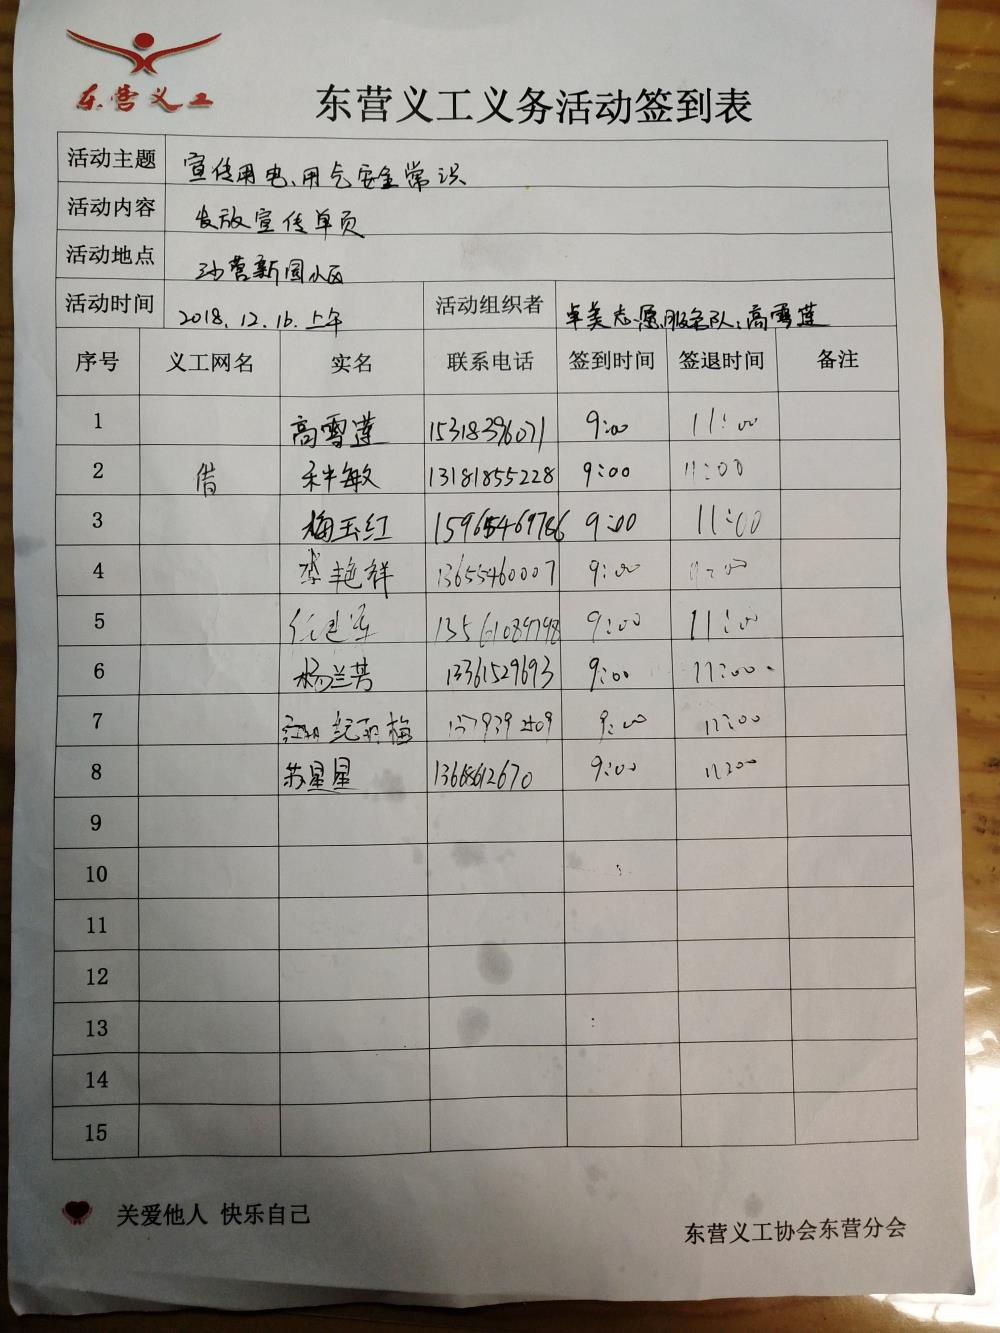 东营义工
东营义工义务活动签到表
活动主题 宣传用电、用气安全常识
活动内容 发放宣传单页
活动地点 沙营新围小区
活动时间 2018.12.16.上午 活动组织者 卓美志愿服务队:高雪莲
序号 义工网名 实名 联系电话 签到时间 签退时间 备注
1 高雪莲 15318396071 9:00 11:00
2 借 敏 13181855228 9:00 11:00
3 梅玉红 9:00 11:00
4 李艳祥 13655460007 9:00
5 13561089798 9:00 11:00
6 杨兰芳 13361529693 9:00 11:00
7 梅 9:00 11:00
8 苏星星 9:00 11:00
9
10
11
12
13
14
15
关爱他人 快乐自己
东营义工协会东营分会